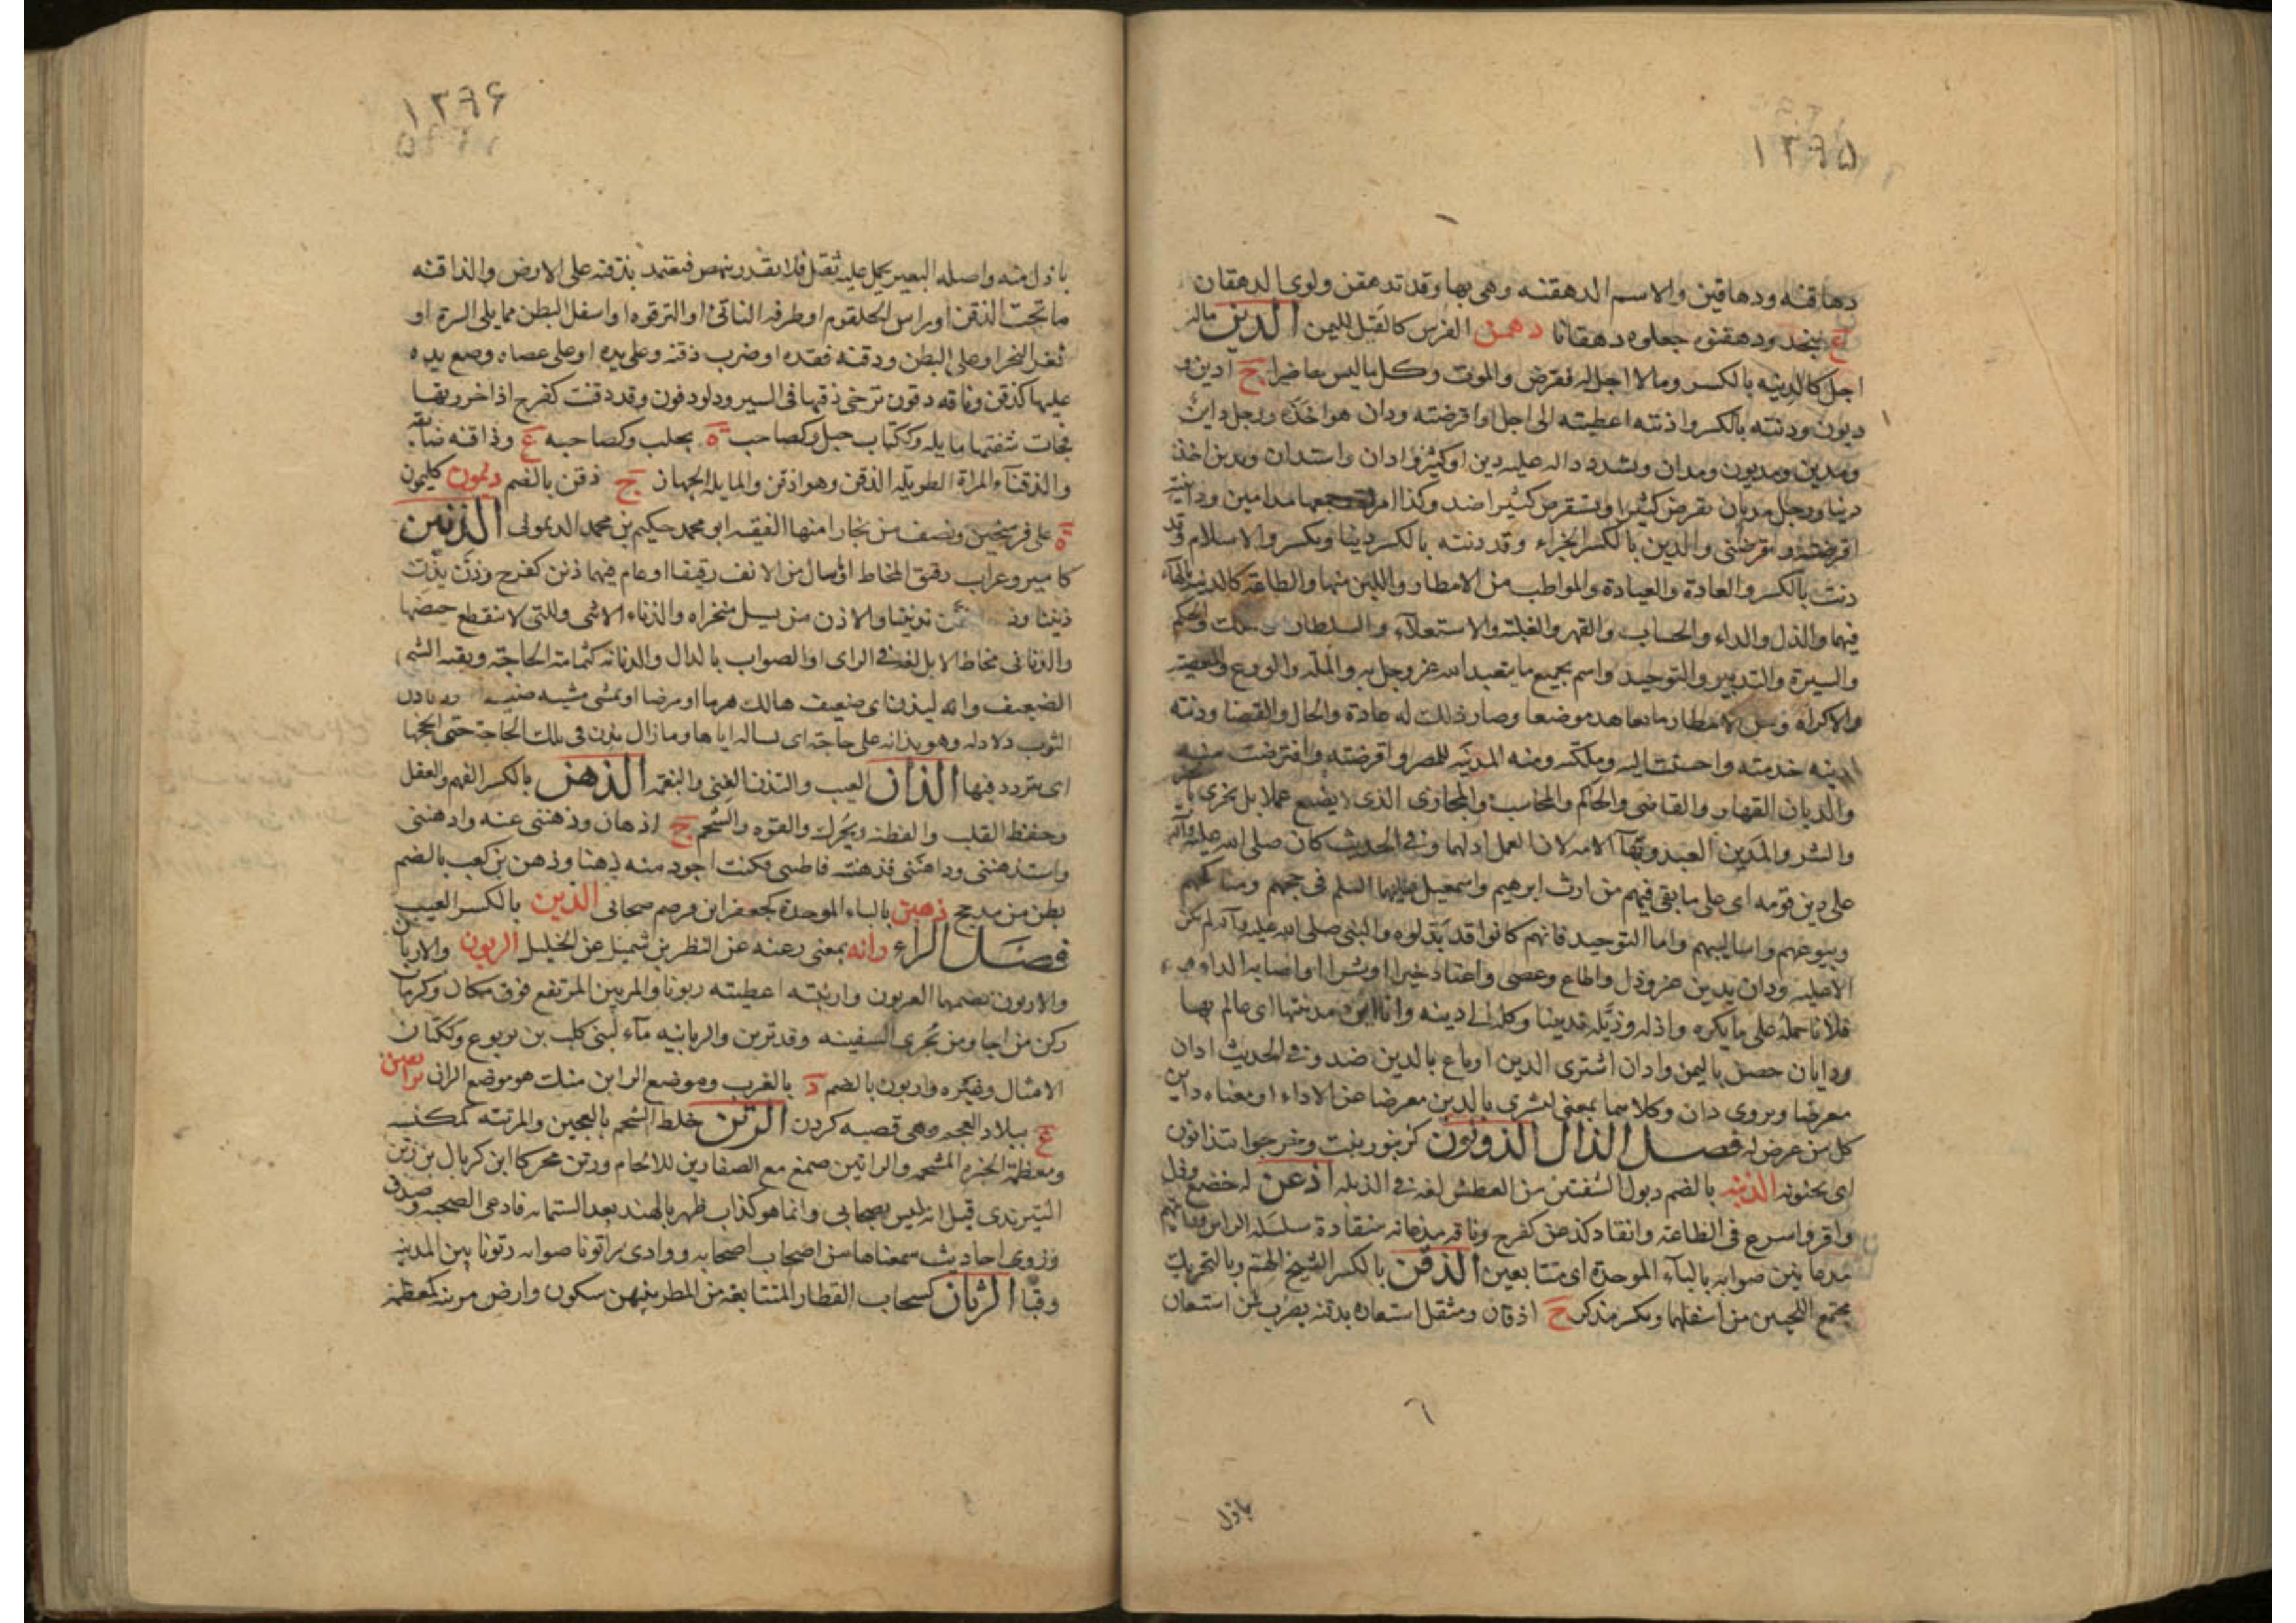 ١٣٩٥
دهاقنه ودهاقين والاسم الدهقنه وهى بها وقد تدهقن ولوى الدهقان
ع بنجد ودهقنوه جعلوه دهقانا دهمن الفرس كالقيل لليمن الدين ماله
اجل كالدينه بالكسر ومالا اجل له فقرض والموت وكل ماليس حاضرا ج ادين و
ديون ودنته بالكسر وادنته اعطيته الى اجل او اقرضته ودان هو اخذه ورجل داين
ومدين ومديون ومدان وتشدد داله عليه دين او كثير وادان واستدان وتدين اخذ
دينا ورجل مديان يقرض كثيرا ويستقرض كثيرا ضد وكذا امراة جمعها مداين وداينته
اقرضته واقرضنى والدين بالكسر الجزاء وقد دنته بالكسر دينا ويكسر والاسلام وقد
دنت بالكسر والعادة والعبادة والمواطب من الامطار واللين منها والطاعة كالدينه بالهاء
فيهما والذل والداء والحساب والقهر والغلبة والاستعلاء والسلطان والملك والحكم
والسيرة والتدبير والتوحيد واسم بجميع ما يتعبد الله عز وجل به والملة والورع والمعصية
والاكراه ومن الامطار ما تعاهد موضعا وصار ذلك له عادة والحال والقضا ودنته
ادينه خدمته واحسنت اليه وملكته ومنه المدينه للمصر واقرضته واقترضت منه
والديان القهار والقاضى والحاكم والمحاسب والمجازى الذى لا يضيع عملا بل يجزى بالخير
والشر والمدين العبد وبهآ الامه لان العمل اذلهما وفى الحديث كان صلى الله عليه وآله
على دين قومه اى على ما بقى فيهم من ارث ابرهيم واسمعيل عليهما السلم فى حجهم ومناكحهم
وبيوعهم واساليبهم واما التوحيد فانهم كانوا قد بدلوه والنبى صلى الله عليه وآله لم يكن
الا عليه ودان يدين عز وذل واطاع وعصى واعتاد خيرا او شرا او اصابه الداء و
فلانا حمله على ما يكره واذله وديّنه تديينا وكله الى دينه وانا ابن مدينتها اى عالم بها
ودايان حصن باليمن وادان اشترى الدين او باع بالدين ضد وفى الحديث ادان
معرضا ويروى دان وكلاهما بمعنى اشترى بالدين معرضا عن الاداء او معناه داين
كل من عرض له فصل الذال الذونون كزنبور نبت وخرجوا يتذانون
اى يجنونه الذبنه بالضم ذبول الشفتين من العطش لغة فى الذبله اذعن له خضع وذل
واقر واسرع فى الطاعه وانقاد كذعن كفرح وناقه مذعانه منقادة سلسله الراس
مذعانين صوابه بالبآء الموحدة اى متتابعين الذقن بالكسر الشيخ الهم وبالتحريك
مجتمع اللحيين من اسفلهما ويكسر مذكر ج اذقان ومثقل استعان بذقنه يضرب لمن استعان
باذل
١٣٩۶
باذل منه واصله البعير يحمل عليه ثقل فلا يقدر ينهض فيعتمد بذقنه على الارض والذاقنه
ما تحت الذقن او راس الحلقوم او طرفه الناتئ او الترقوه او اسفل البطن مما يلى السرة او
ثغرة النحر او على البطن وذقنه فقده او ضرب ذقنه وعلى يده او على عصاه وضع يده
عليها كذقن وناقه دقون ترخى ذقنها فى السير ودلو دقون وقد دقنت كفرح اذا خرزتها
فجات شفتها مايله وككتاب جبل وكصاحب ة بحلب وكصاحبه ع وذاقنه ضايقه
والذقنآء المراة الطويلة الذقن وهو اذقن والمايلة الجهان ج ذقن بالضم ديمون كليمون
ة على فرسخين ونصف من بخارا منها الفقيه ابو محمد حكيم بن محمد الديمونى الذنين
كامير وغراب رقيق المخاط او سال من الانف رقيقا او عام فيهما ذنن كفرح وذنّ يذنّ
ذنينا وذ تذنينا والاذن من يسيل منخراه والذناء الانثى وللتى لا ينقطع حيضها
والذنانى مخاط الابل لغة فى الراى او الصواب بالدال والذنانه كثمامة الحاجة وبقية الشى
الضعيف وانه ليذن اى ضعيف هالك هرما او مرضا او يمشى مشيه ضعيفه وذناذن
الثوب ذلاذله وهو يذانه على حاجة اى يساله اياها وما زال يذن فى تلك الحاجة حتى انجحها
اى يتردد فيها الذان العيب والتذن الغنى والنغمة الذهن بالكسر الفهم والعقل
وحفظ القلب والفطنه ويحرك والقوه والشحم ج اذهان وذهننى عنه واذهننى
واستذهننى وذاهننى فذهنته فاطننى فكنت اجود منه ذهنا وذهن بن كعب بالضم
بطن من مذحج ذهبن بالباء الموحدة كجعفر ابن قرضم صحابى الذين بالكسر العيب
فصل الراء رانه بمعنى رعنه عن النظر بن شميل عن الخليل الربون والاربان
والاربون بضمهما العربون واربنته اعطيته ربونا والمربين المرتفع فوق مكان وكرمان
ركن من اجا ومن يُجرى السفينه وقد تربن والربانيه مآء لبنى كلب بن يربوع وككتان
الامثال وغيره واربون بالضم د بالغرب وموضع الرابن منك هو موضع الرانى
ع ببلاد العجم وهى قصبه كردن الرتن خلط الشحم بالعجين والمرتنه كمكنسه
ومعظمة الخبزه المشحمه والراتين صمغ مع الصفارين للالحام ورتن محركا ابن كربال بن رتن
البترندى قيل انه ليس بصحابى وانما هو كذاب ظهر بالهند بعد الستمايه فادعى الصحبه وصدق
وروى احاديث سمعناها من اصحاب اصحابه ووادى راتونا صوابه رتونا بين المدينه
وقبا الرثان كسحاب القطار المتتابعة من المطر بينهن سكون وارض مرثنه كمعظمة